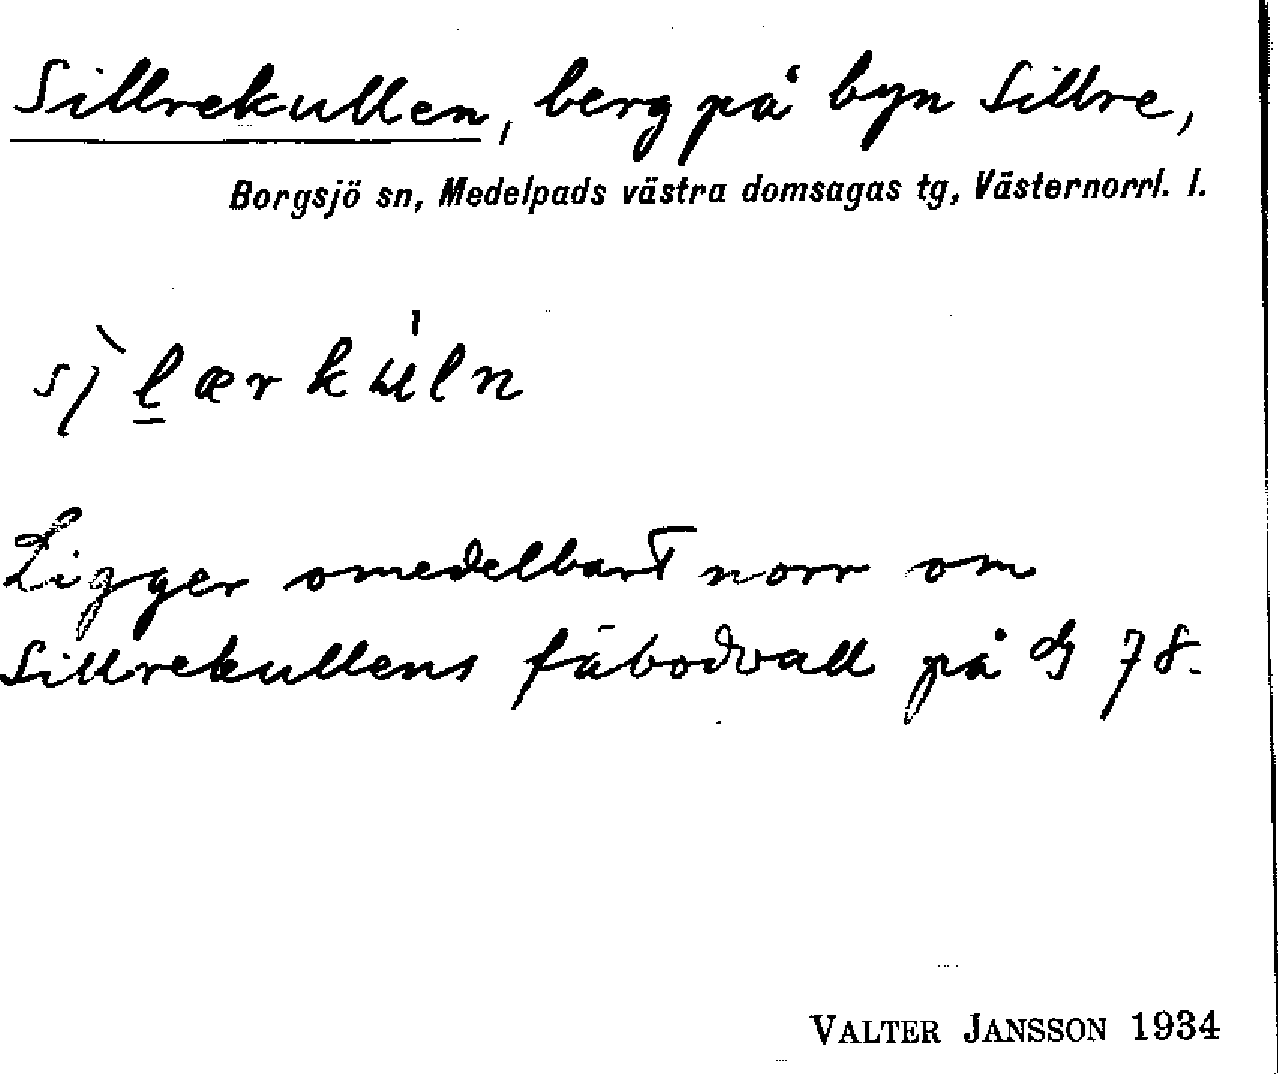 Sillrekullen, berg på byn Sillre,
Borgsjö sn, Medelpads västra domsagas tg, Västernorrl. l.
Ligger omedelbart norr om
Sillrekullens fäbodvall på G 78.
VALTER JANSSON 1934